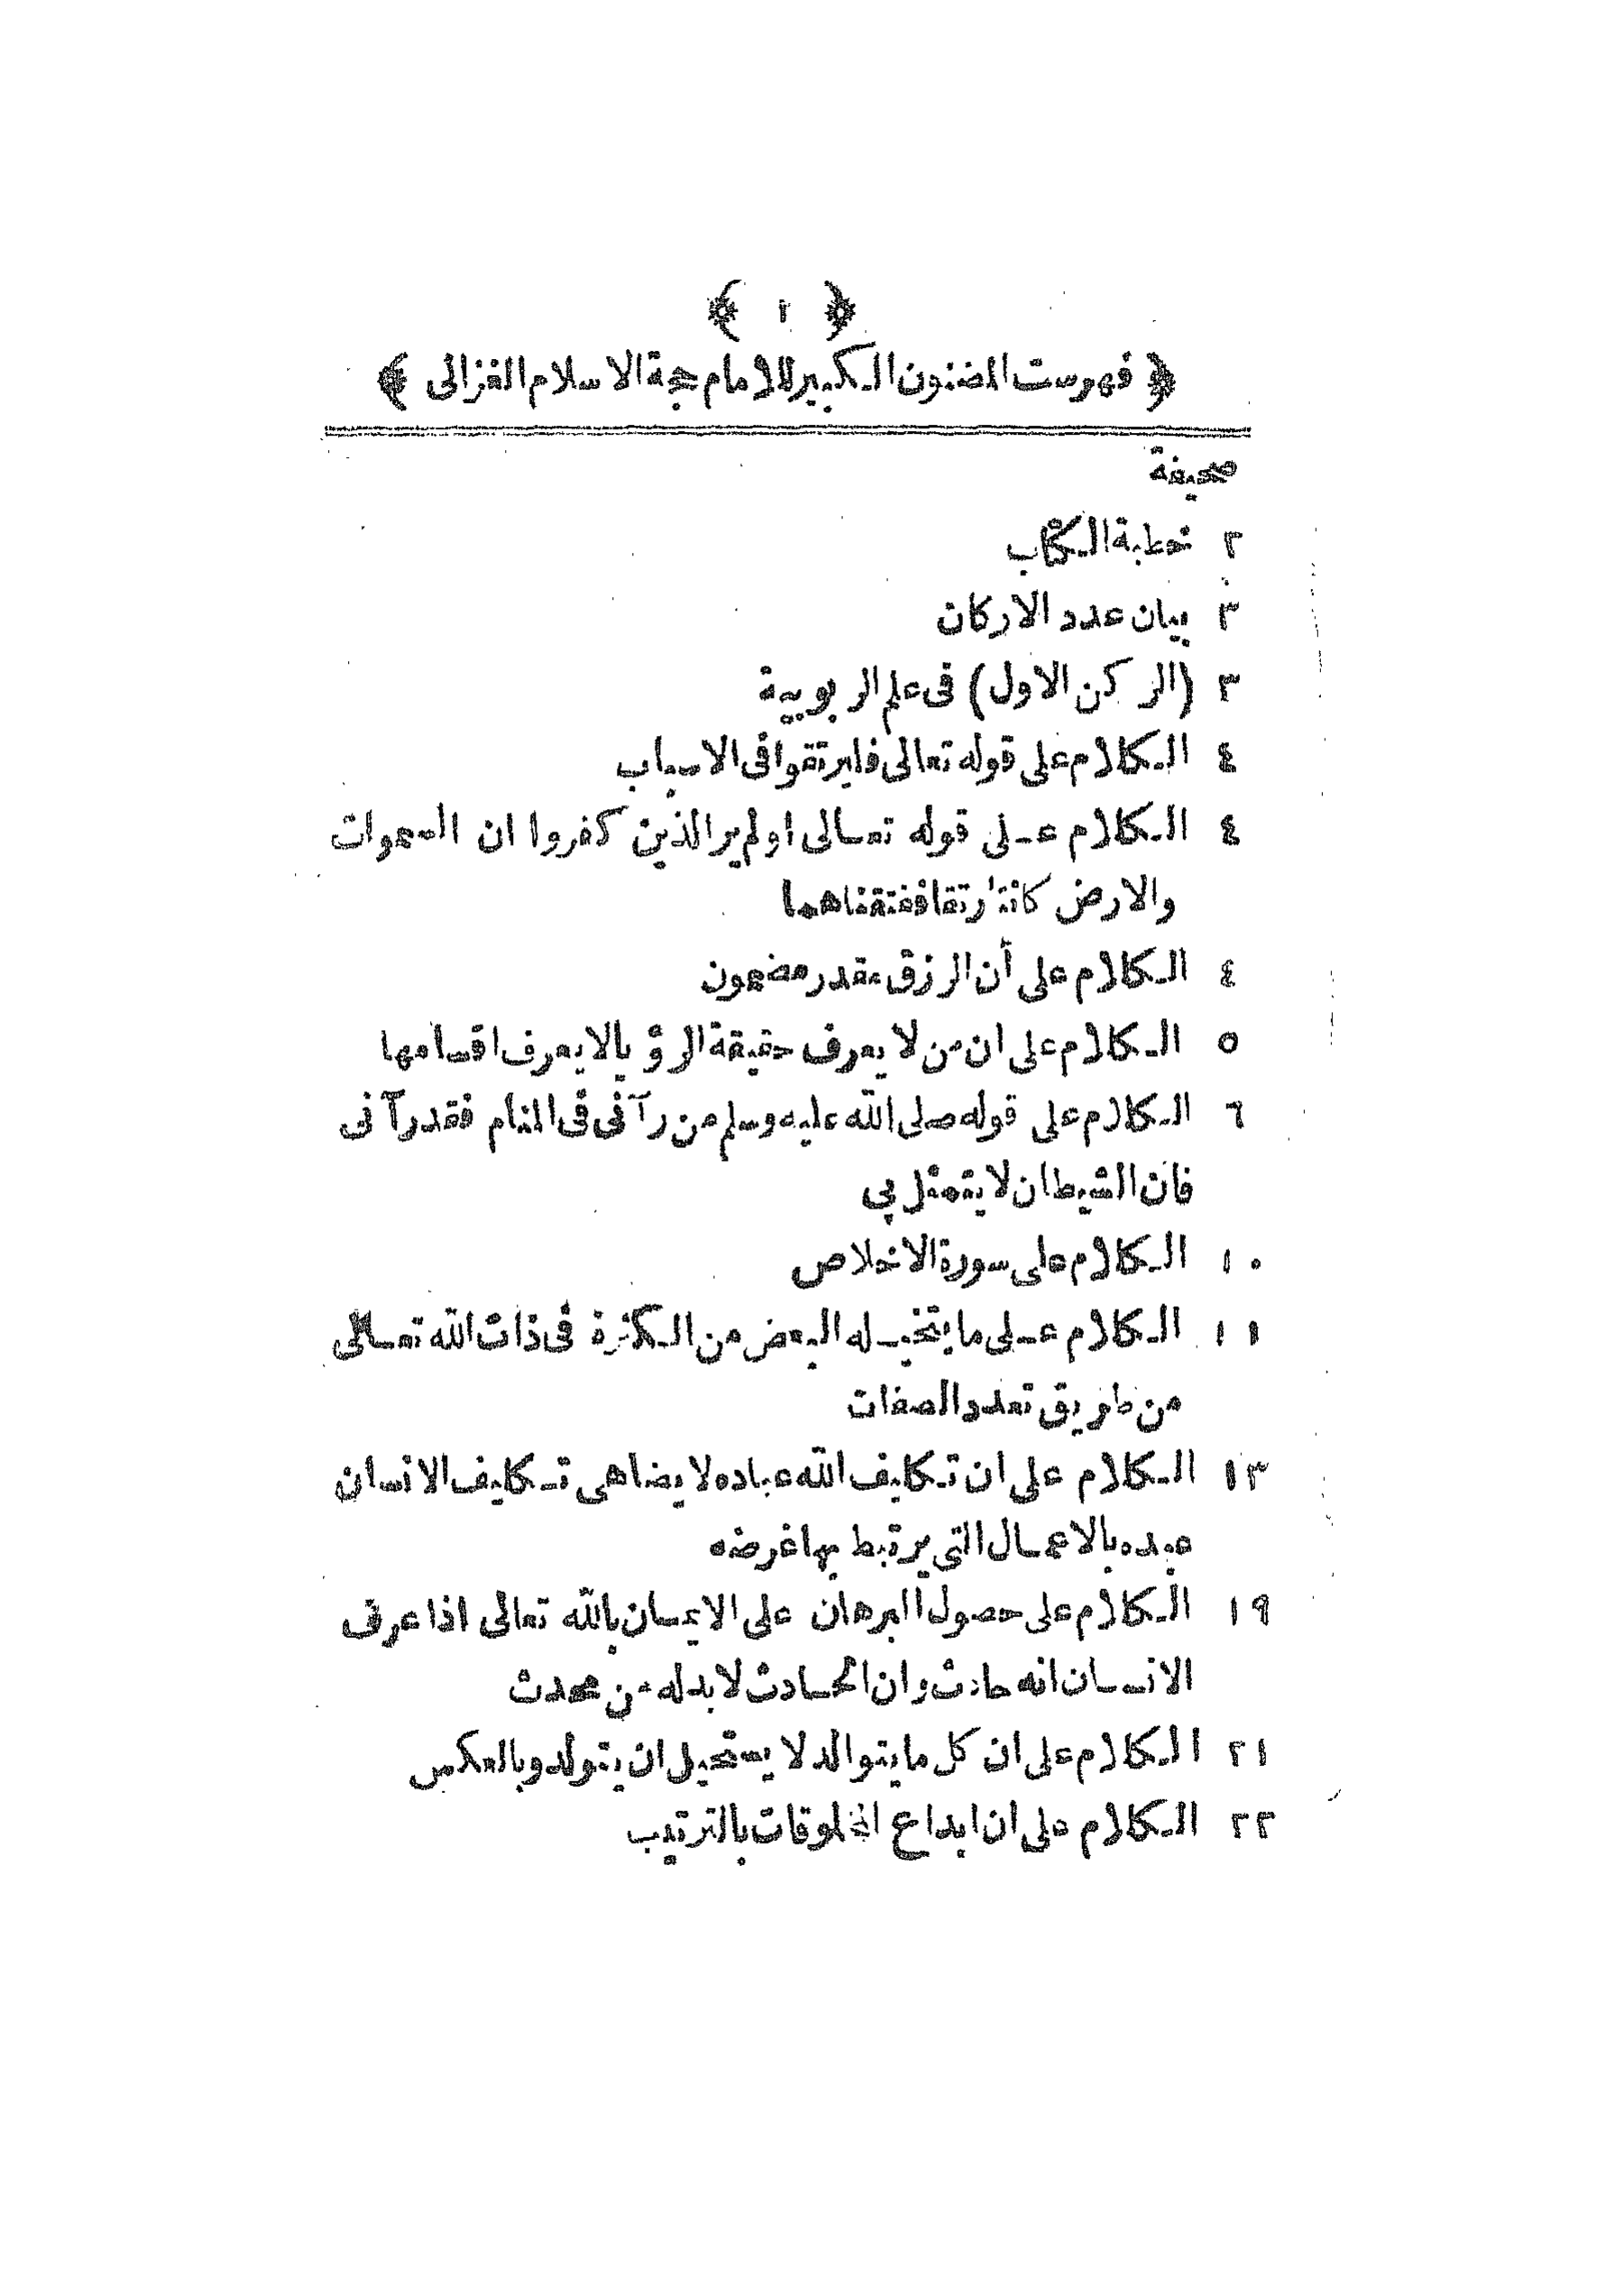 ﴿ ١ ﴾
﴿ فهرست المضنون الكبير للامام حجة الاسلام الغزالى ﴾
صحيفة
٢ خطبة الكتاب
٣ بيان عدد الاركان
٣ (الركن الاول) فى علم الربوبية
٤ الكلام على قوله تعالى فليرتقوا فى الاسباب
٤ الكلام على قوله تعالى اولم ير الذين كفروا ان السموات
والارض كانتا رتقا ففتقناهما
٤ الكلام على أن الرزق مقدر مضمون
٥ الكلام على ان من لا يعرف حقيقة الرؤيا لا يعرف اقسامها
٦ الكلام على قوله صلى الله عليه وسلم من رآنى فى المنام فقد رآنى
فان الشيطان لا يتمثل بى
١٠ الكلام على سورة الاخلاص
١١ الكلام على ما يتخيله البعض من الكثرة فى ذات الله تعالى
من طريق تعدد الصفات
١٣ الكلام على ان تكليف الله عباده لا يضاهى تكليف الانسان
عبده بالاعمال التى يرتبط بها غرضه
١٩ الكلام على حصول البرهان على الايمان بالله تعالى اذا عرف
الانسان انه حادث وان الحادث لا بد له من محدث
٢١ الكلام على ان كل ما يتوالد لا يستحيل ان يتولد وبالعكس
٢٢ الكلام على ان ابداع المخلوقات بالترتيب